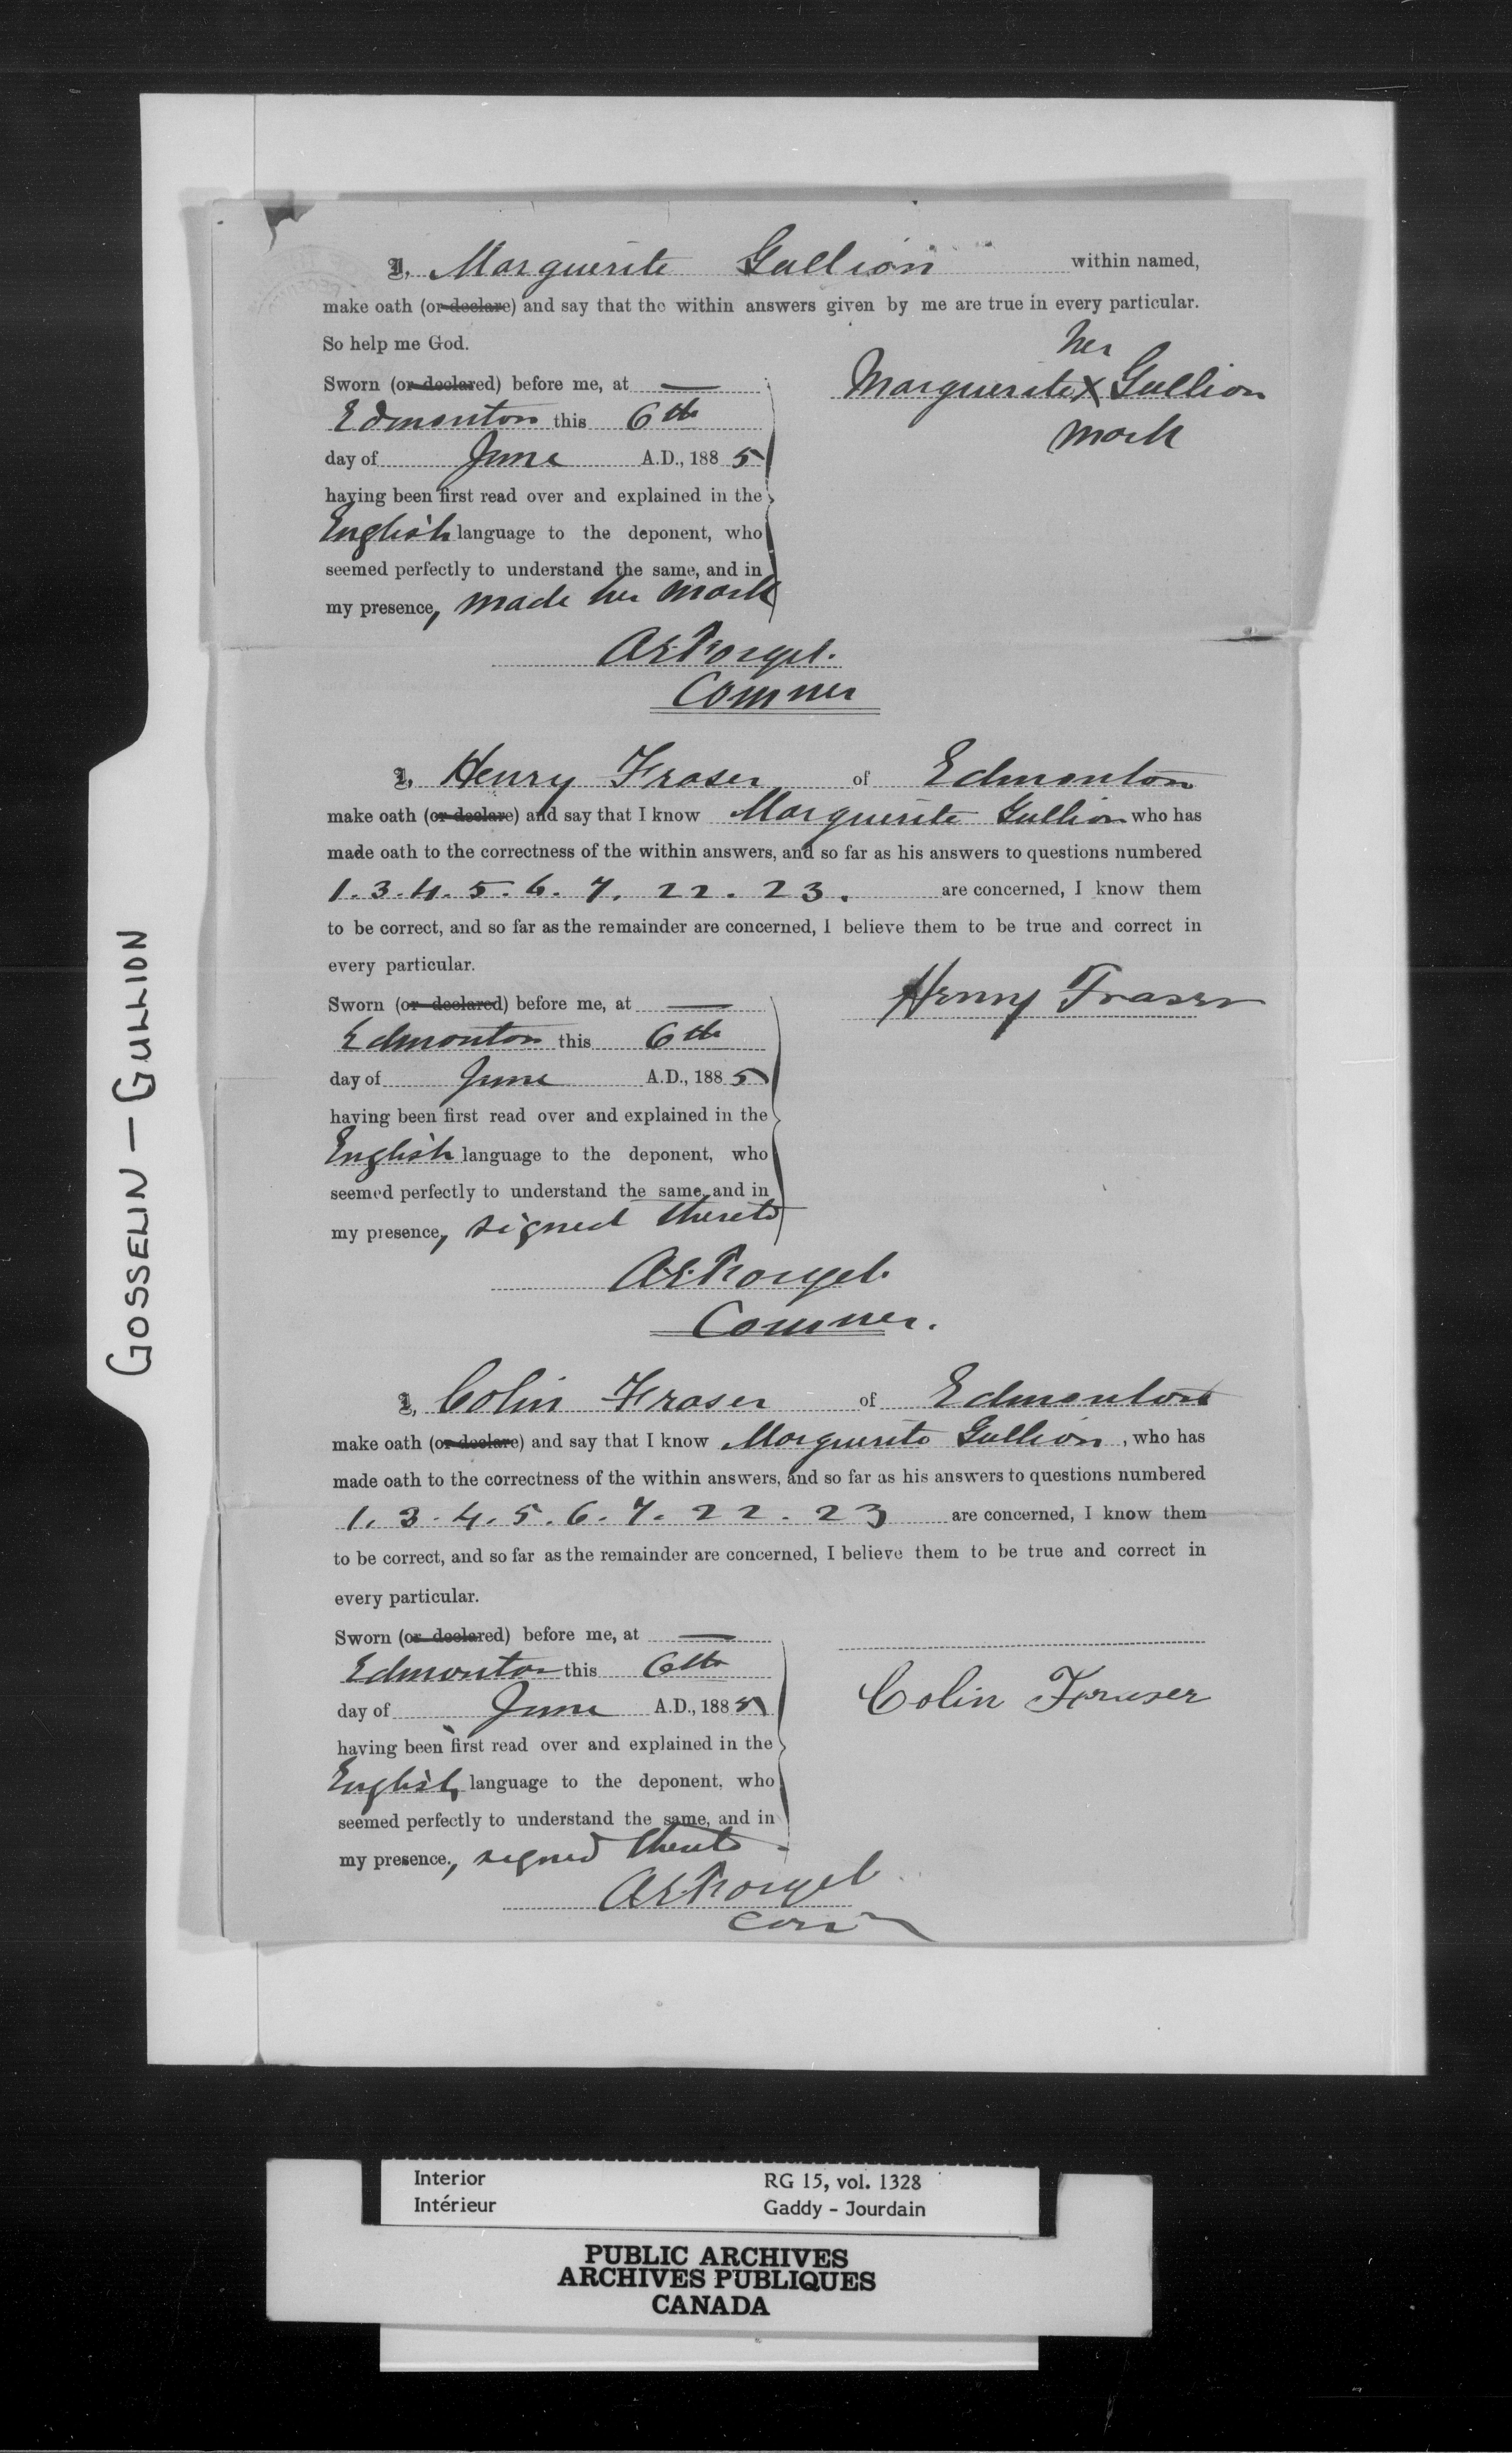 I, Marguerite Gullion within named,
make oath (or declare) and say that the within answers given by me are true in every particular.
So help me God.
her
Marguerite X Gullion
mark
Sworn (or declared) before me, at —
Edmonton this 6th
day of June A.D., 1885
having been first read over and explained in the
English language to the deponent, who
seemed perfectly to understand the same, and in
my presence, made her mark
A.E. Forget.
Commer
I, Henry Fraser of Edmonton
make oath (or declare) and say that I know Marguerite Gullion who has
made oath to the correctness of the within answers, and so far as his answers to questions numbered
1. 3. 4. 5. 6. 7. 22. 23. are concerned, I know them
to be correct, and so far as the remainder are concerned, I believe them to be true and correct in
every particular.
Henry Fraser
Sworn (or declared) before me, at —
Edmonton this 6th
day of June A.D., 1885
having been first read over and explained in the
English language to the deponent, who
seemed perfectly to understand the same, and in
my presence, signed thereto
A.E. Forget.
Commer.
I, Colin Fraser of Edmonton
make oath (or declare) and say that I know Marguerite Gullion, who has
made oath to the correctness of the within answers, and so far as his answers to questions numbered
1. 3. 4. 5. 6. 7. 22. 23 are concerned, I know them
to be correct, and so far as the remainder are concerned, I believe them to be true and correct in
every particular.
Sworn (or declared) before me, at —
Edmonton this 6th
day of June A.D., 1885
Colin Fraser
having been first read over and explained in the
English language to the deponent, who
seemed perfectly to understand the same, and in
my presence, signed thereto
A.E. Forget
GOSSELIN — GULLION
Interior RG 15, vol. 1328
Intérieur Gaddy - Jourdain
PUBLIC ARCHIVES
ARCHIVES PUBLIQUES
CANADA